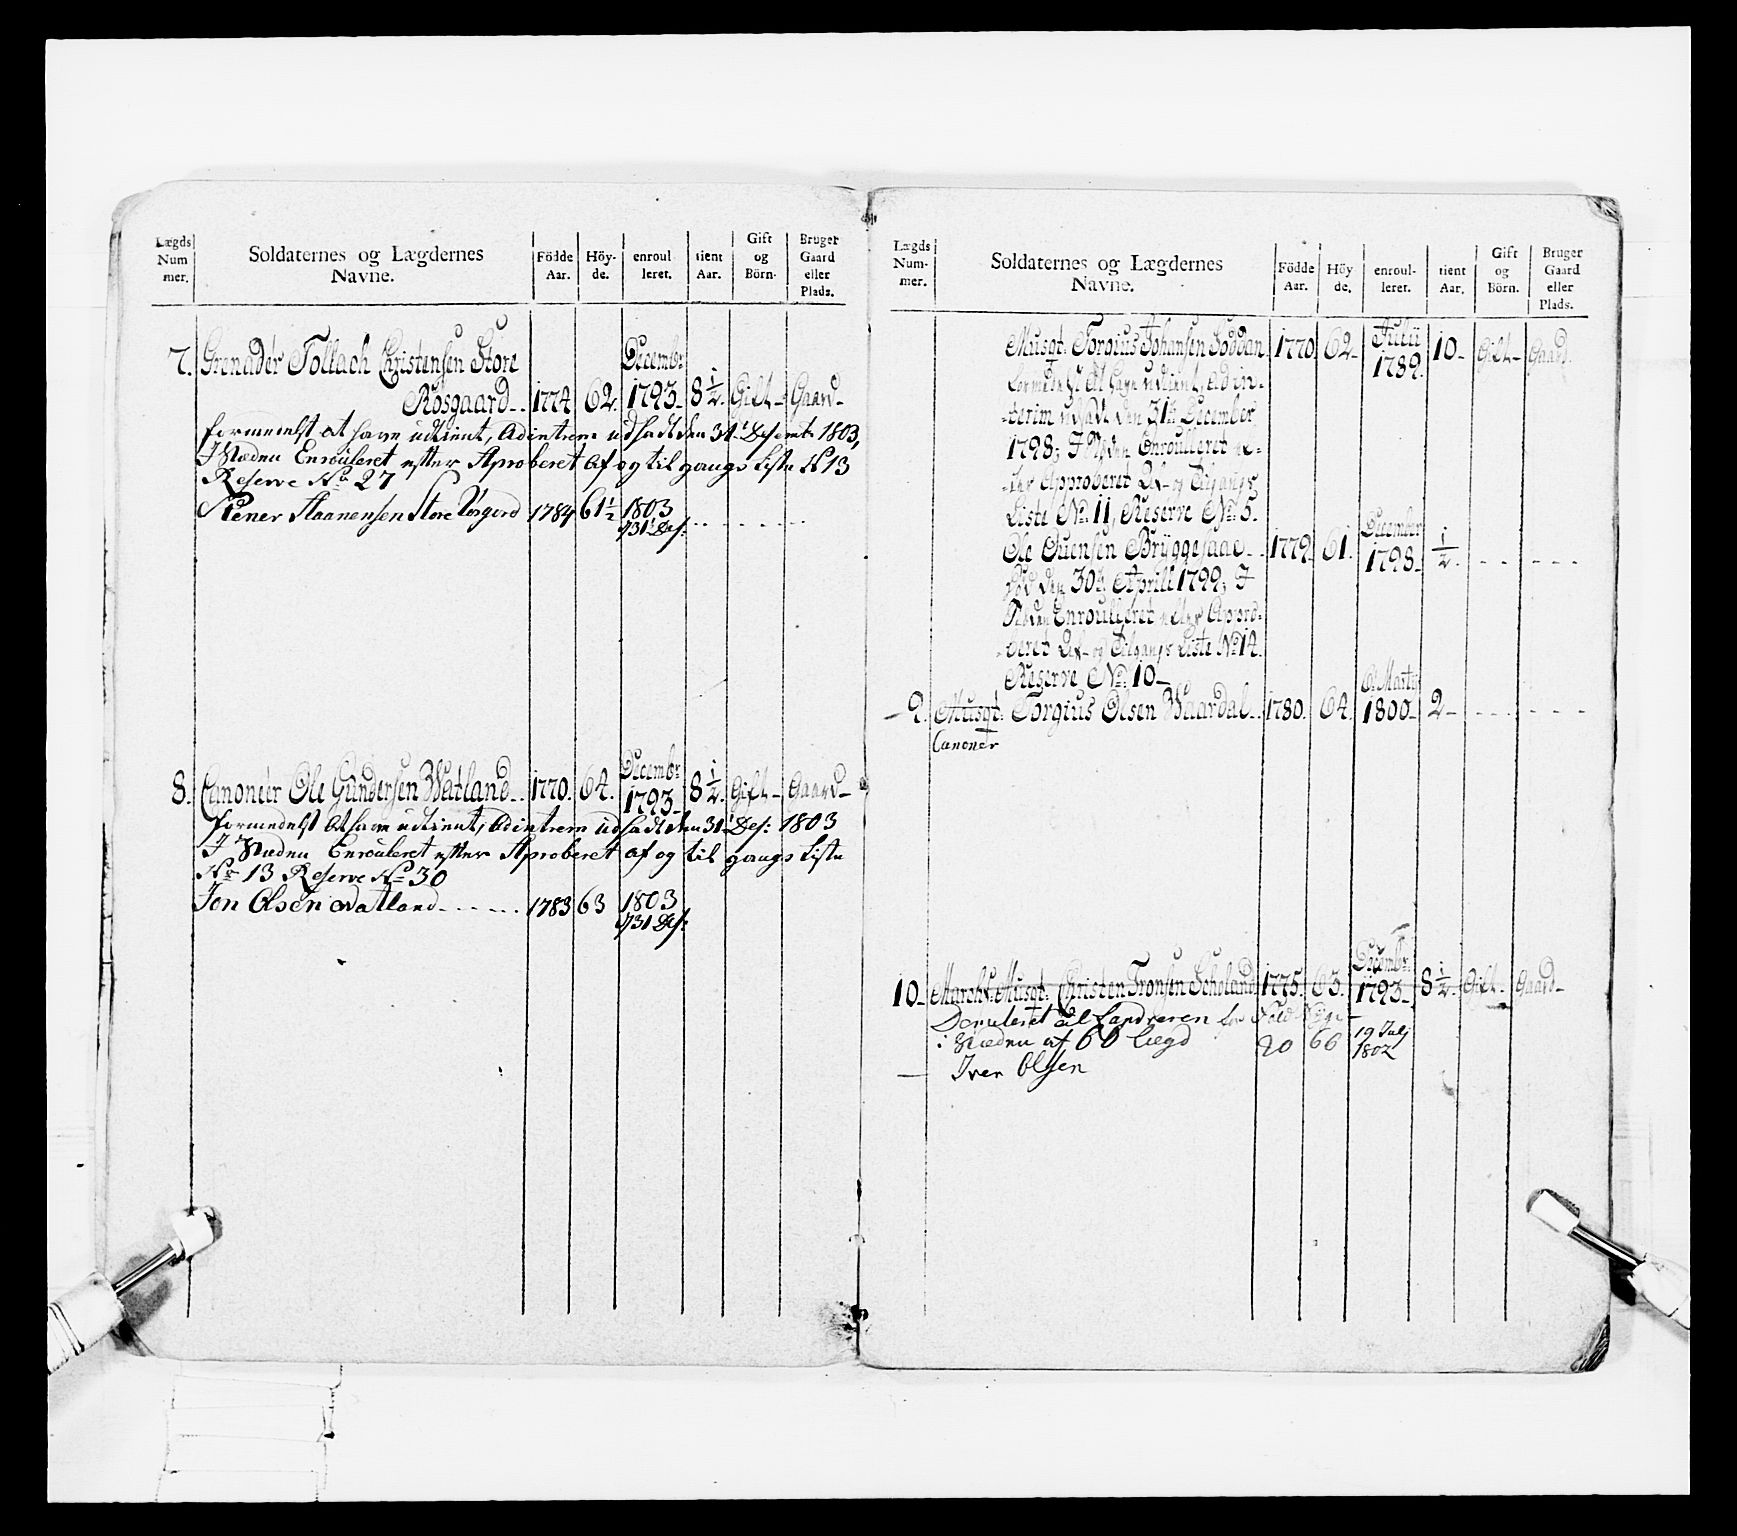 Lægds Num mer.
Soldaternes og Lægdernes Navne.
Födde Aar.
Höy- de.
enroul leret.
tient Aar.
Gift og Börn.
Bruger Gaard eller Plads.
7. Grenadér Tollach Christensen Store Decembr:
Rosgaard 1774. 62. 1793. 8 1/2. Gift Gaard
formedelst at have udtient, Adintrem udsadt den 31
I Stæden Enrouleret efter Aproberet af og til gangs Liste N 13
Reserve No 27
Store 1784 61 1/2 1803
/31 Des:
8. Canoneér Ole Gundersen Watland 1770. 64. Decembr: 1793. 8 1/2. Gift Gaard
formedelst at have udtient, Adintrem udsadt den 31 Des: 1803
I Stæden Enrouleret efter Aproberet af og til gangs Liste
No 13 Reserve No 30
Jon Olsen Watland 1783 63 1803
/31 Des:
Lægds Num- mer.
Soldaternes og Lægdernes Navne.
Födde Aar.
Höy de.
enroul- leret.
tient Aar.
Gift og Börn.
Bruger Gaard eller Plads.
Musqt: Torgius Johansen 1770. 62. Julii 1789. 10. Gift Gaard.
formedelst At have udtient, ad in-
terim udsadt den 31te December
1798; I Stæden Enroulleret ef-
ter Approberet Af- og Tilgangs
Liste No: 11, Reserve No: 5.
Ole 1779. 61. December 1798. 1/2.
død den 30te Aprill 1799; I
Stæden Enroulleret efter Appro-
beret Af- og Tilgangs Liste No 14.
Reserve No: 10
9. Musqt: Torgius Olsen Waardal 1780. 64. Marty 1800. 2
Canoner
10. Musqt: Christen Tronsen 1775. 63. Decembr: 1793. 8 1/2. Gift Gaard
til Landværen
i Stæden af 60 Lægd 20 66 19 July 1802
Iver Olsen